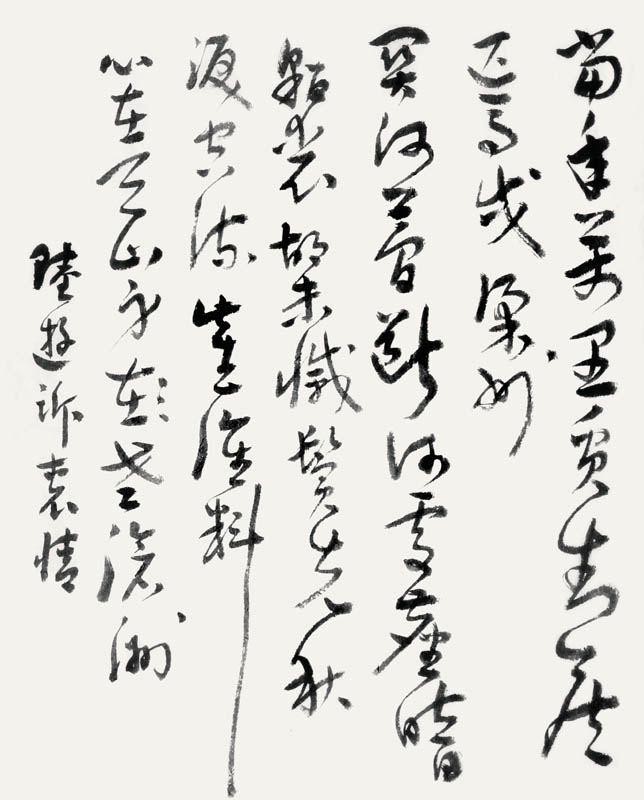 當年萬里覓封侯
匹馬戍梁州
關河夢斷何處塵暗
貂裘胡未滅鬢先秋
淚空流此生誰料
心在天山身在老滄洲
陸遊訴衷情